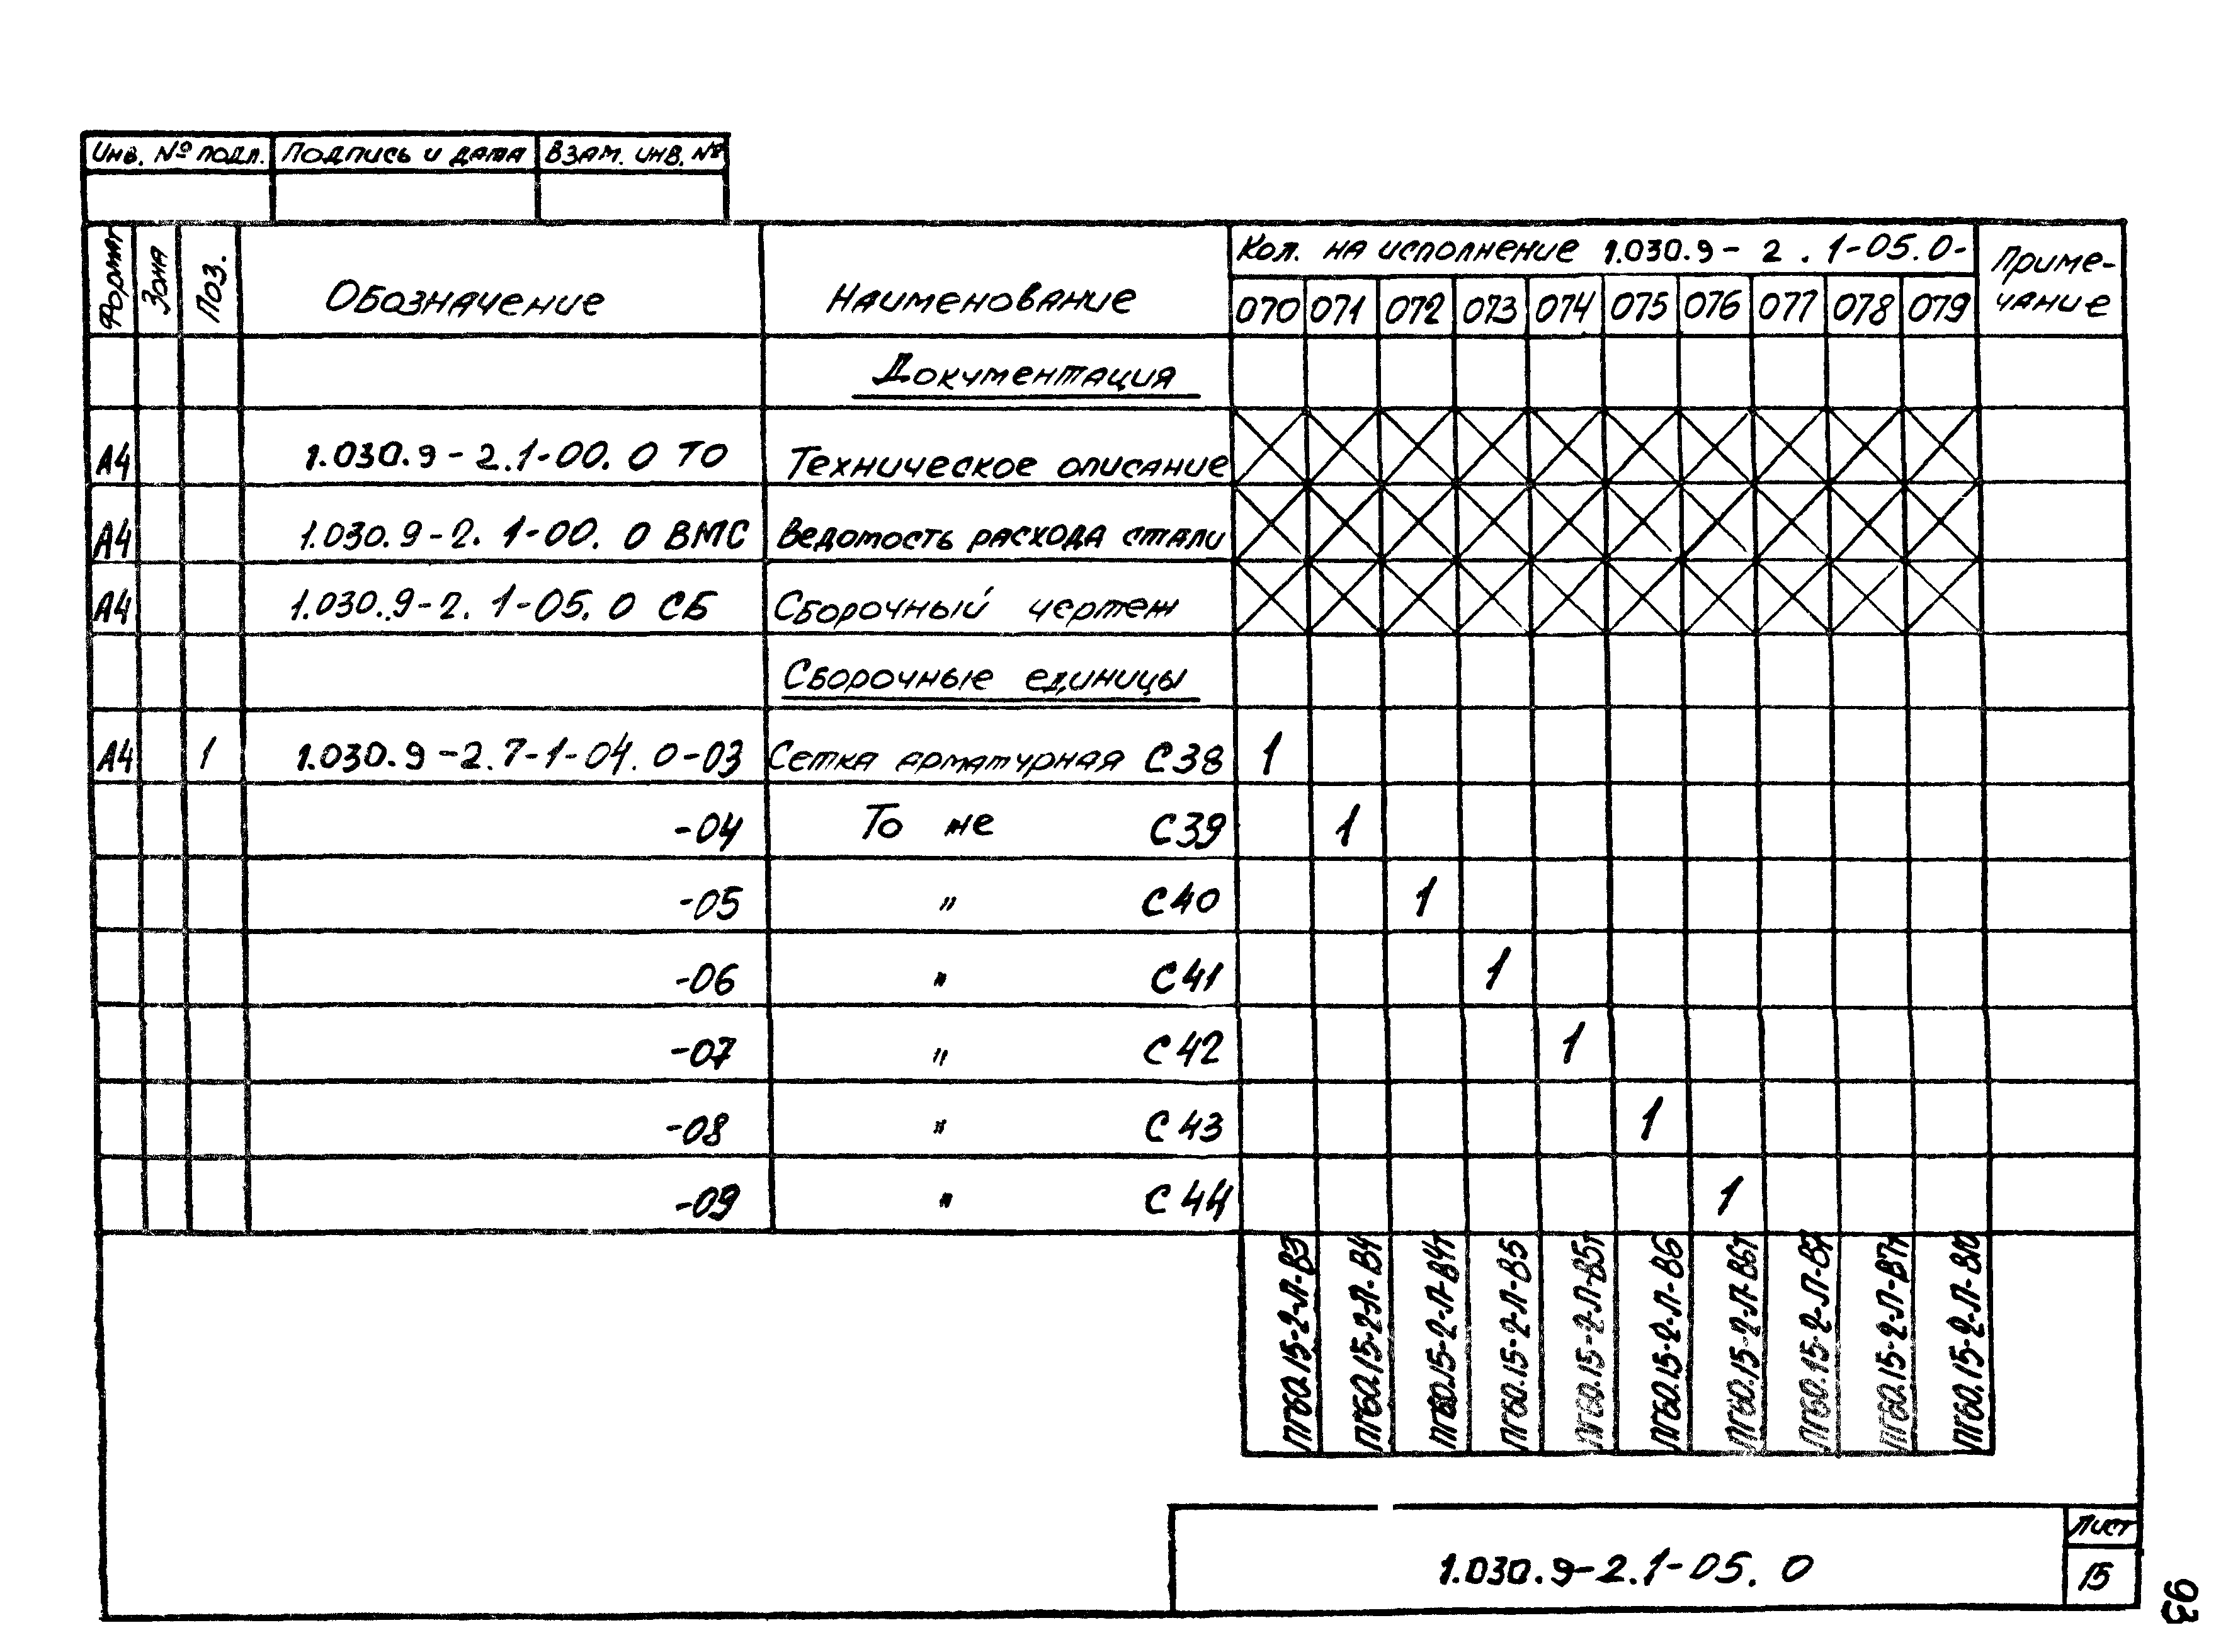 Инв. № подл. Подпись и дата Взам. инв. №
Формат Зона Поз. Обозначение Наименование Кол. на исполнение 1.030.9-2.1-05.0- Приме-
чание
070 071 072 073 074 075 076 077 078 079
Документация
А4 1.030.9-2.1-00.0 ТО Техническое описание
А4 1.030.9-2.1-00.0 ВМС Ведомость расхода стали
А4 1.030.9-2.1-05.0 СБ Сборочный чертеж
Сборочные единицы
А4 1 1.030.9-2.7-1-04.0-03 Сетка арматурная С38 1
-04 То же С39 1
-05 " С40 1
-06 " С41 1
-07 " С42 1
-08 " С43 1
-09 " С44 1
ПГ60.15-2-Л-В3
ПГ60.15-2-Л-В4
ПГ60.15-2-Л-В4т
ПГ60.15-2-Л-В5
ПГ60.15-2-Л-В5т
ПГ60.15-2-Л-В6
ПГ60.15-2-Л-В6т
ПГ60.15-2-Л-В7
ПГ60.15-2-Л-В7т
ПГ60.15-2-Л-В10
1.030.9-2.1-05.0
Лист
15
93